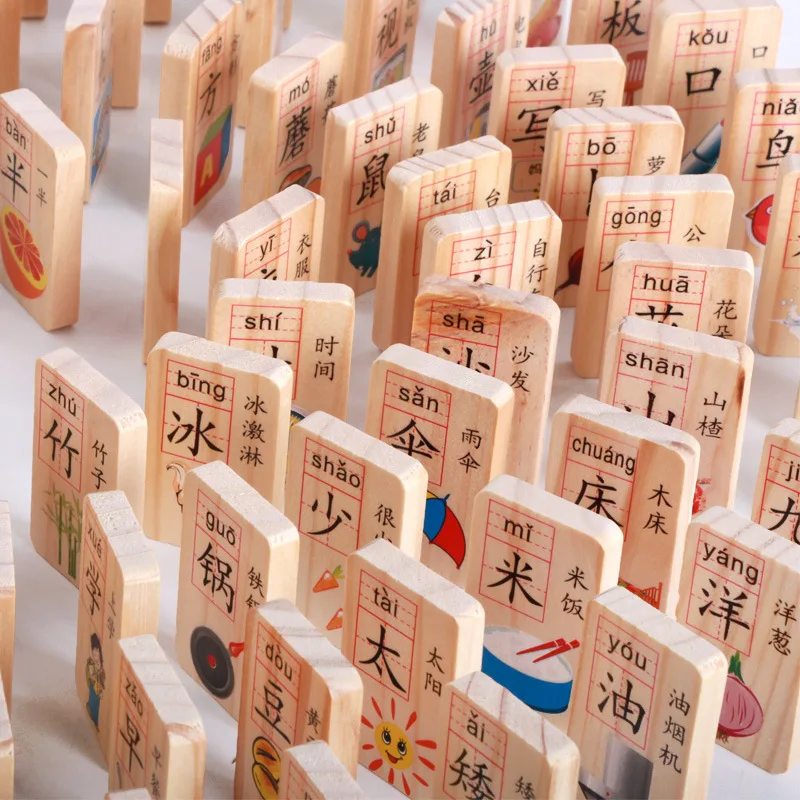 bàn
半
一半
fāng
方
mó
蘑
shǔ
鼠
视
hú
壶
xiě
写
写
板
kǒu
口
口
bō
萝
鸟
tái
台
yī
衣服
zì
自行
gōng
公
huā
花
花朵
shí
时间
shā
沙
沙发
shān
山
山楂
zhú
竹
竹子
bīng
冰
冰激淋
sǎn
伞
雨伞
chuáng
床
木床
九
shǎo
少
很少
guō
锅
铁锅
mǐ
米
米饭
yáng
洋
洋葱
xué
学
tài
太
太阳
yóu
油
油烟机
dòu
豆
黄
zǎo
早
ǎi
矮
矮